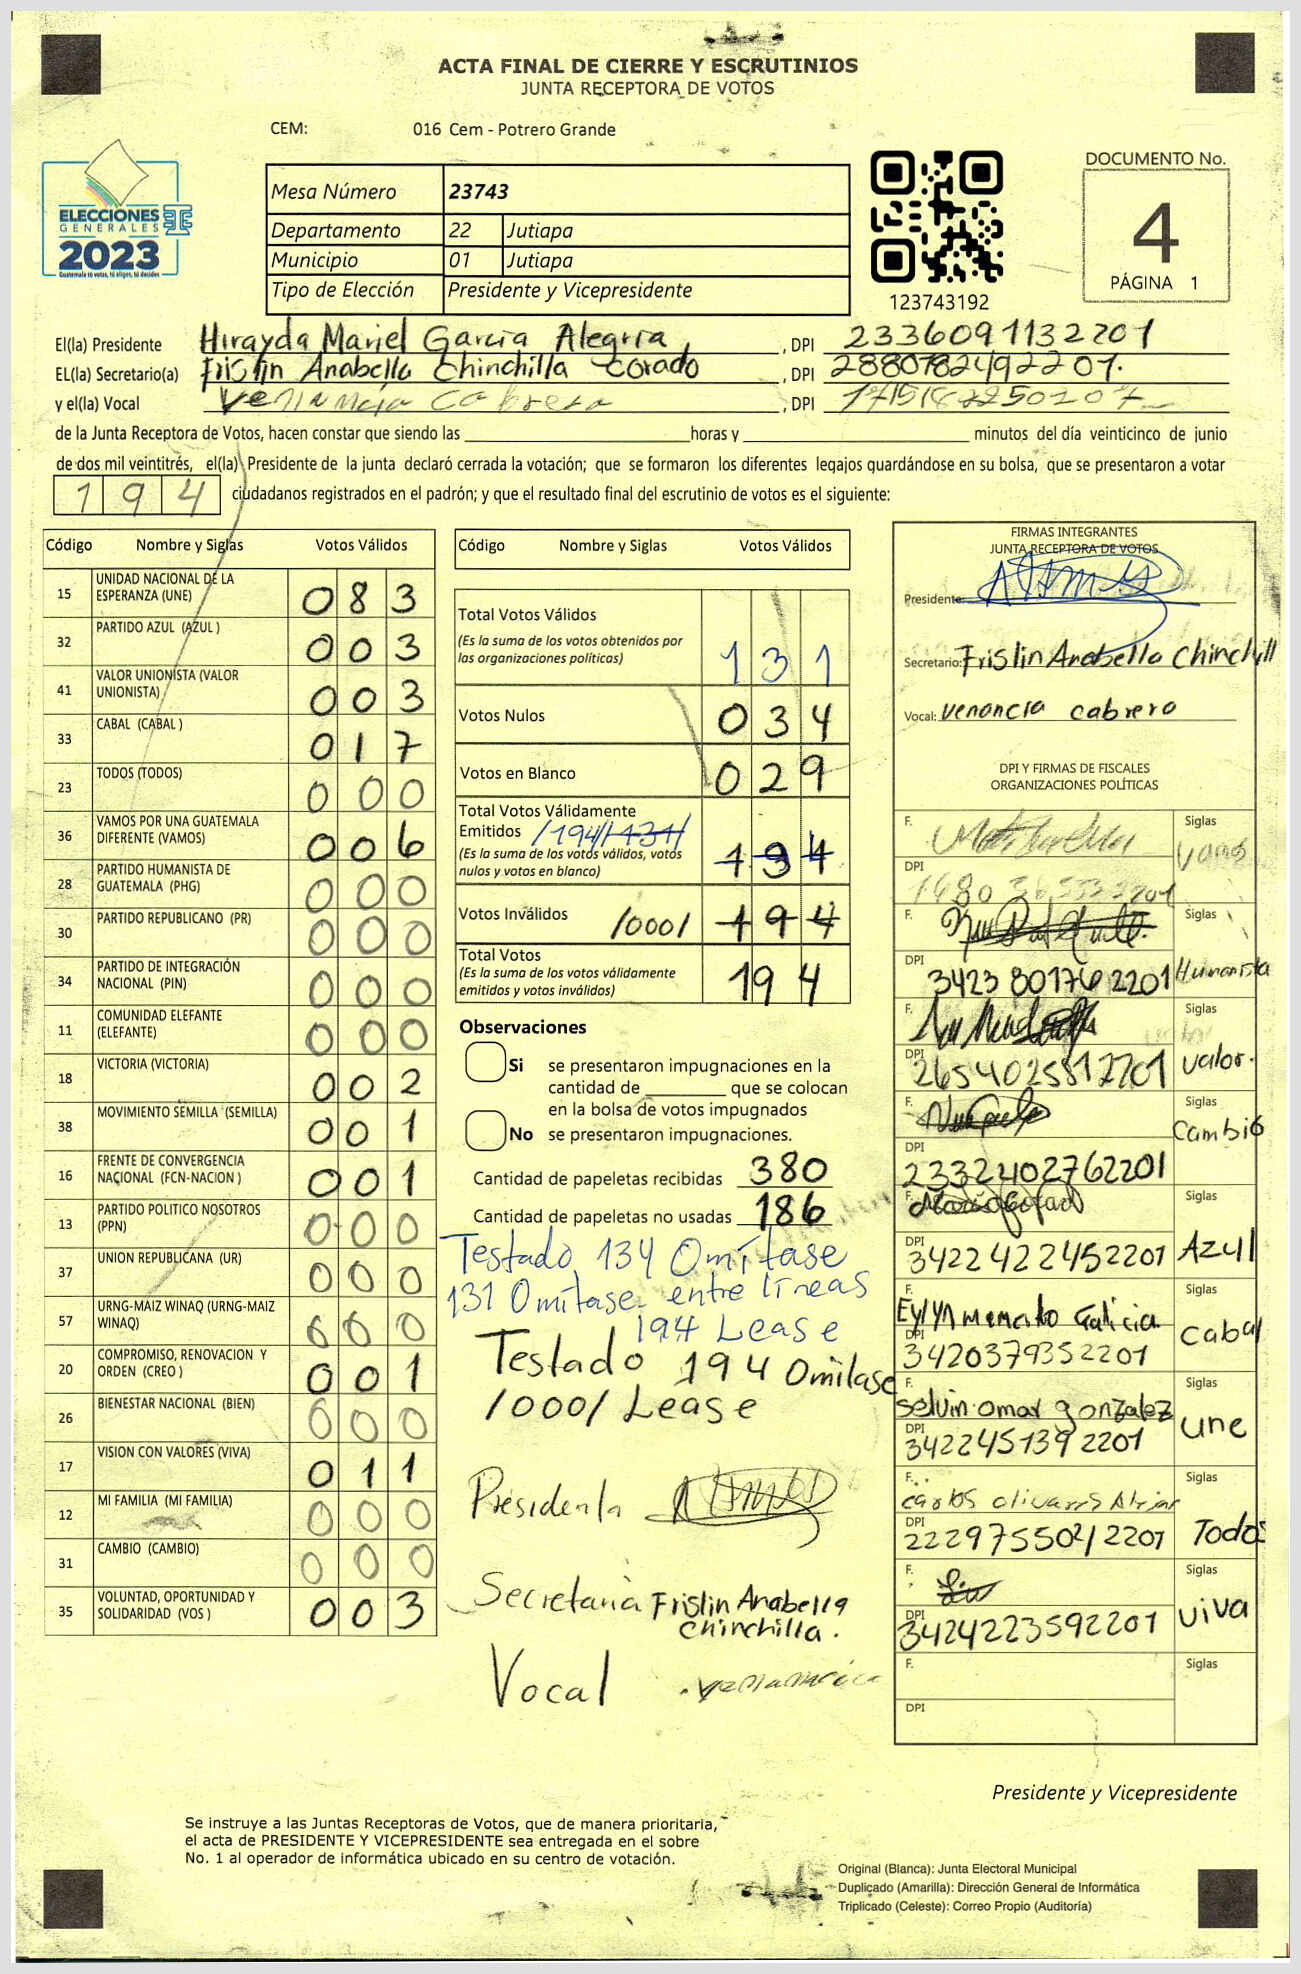 ACTA FINAL DE CIERRE Y ESCRUTINIOS
JUNTA RECEPTORA DE VOTOS
CEM: 016 Cem - Potrero Grande
ELECCIONES
GENERALES
2023
Guatemala tú votas, tú eliges, tú decides
Mesa Número 23743
Departamento 22 Jutiapa
Municipio 01 Jutiapa
Tipo de Elección Presidente y Vicepresidente
123743192
DOCUMENTO No.
4
PÁGINA 1
El(la) Presidente Hirayda Mariel García Alegria, DPI 2336091132201
EL(la) Secretario(a) Frislin Anabella Chinchilla Corado, DPI
y el(la) Vocal Cabrera, DPI
de la Junta Receptora de Votos, hacen constar que siendo las ____ horas y ____ minutos del día veinticinco de junio
de dos mil veintitrés, el(la) Presidente de la junta declaró cerrada la votación; que se formaron los diferentes legajos guardándose en su bolsa, que se presentaron a votar
194 ciudadanos registrados en el padrón; y que el resultado final del escrutinio de votos es el siguiente:
Código Nombre y Siglas Votos Válidos
15 UNIDAD NACIONAL DE LA ESPERANZA (UNE) 083
32 PARTIDO AZUL (AZUL ) 003
41 VALOR UNIONISTA (VALOR UNIONISTA) 003
33 CABAL (CABAL ) 017
23 TODOS (TODOS) 000
36 VAMOS POR UNA GUATEMALA DIFERENTE (VAMOS) 006
28 PARTIDO HUMANISTA DE GUATEMALA (PHG) 000
30 PARTIDO REPUBLICANO (PR) 000
34 PARTIDO DE INTEGRACIÓN NACIONAL (PIN) 000
11 COMUNIDAD ELEFANTE (ELEFANTE) 000
18 VICTORIA (VICTORIA) 002
38 MOVIMIENTO SEMILLA (SEMILLA) 001
16 FRENTE DE CONVERGENCIA NACIONAL (FCN-NACION ) 001
13 PARTIDO POLITICO NOSOTROS (PPN) 000
37 UNION REPUBLICANA (UR) 000
57 URNG-MAIZ WINAQ (URNG-MAIZ WINAQ) 000
20 COMPROMISO, RENOVACION Y ORDEN (CREO ) 001
26 BIENESTAR NACIONAL (BIEN) 000
17 VISION CON VALORES (VIVA) 011
12 MI FAMILIA (MI FAMILIA) 000
31 CAMBIO (CAMBIO) 000
35 VOLUNTAD, OPORTUNIDAD Y SOLIDARIDAD (VOS ) 003
Código Nombre y Siglas Votos Válidos
Total Votos Válidos
(Es la suma de los votos obtenidos por las organizaciones políticas) 131
Votos Nulos 034
Votos en Blanco 029
Total Votos Válidamente
Emitidos /194/
(Es la suma de los votos válidos, votos nulos y votos en blanco)
Votos Inválidos /000/ 194
Total Votos
(Es la suma de los votos válidamente emitidos y votos inválidos) 194
Observaciones
Si se presentaron impugnaciones en la
cantidad de ____ que se colocan
en la bolsa de votos impugnados
No se presentaron impugnaciones.
Cantidad de papeletas recibidas 380
Cantidad de papeletas no usadas 186
Testado 134 Omítase
131 Omítase entre líneas
194 Lease
Testado 194 Omitase
/000/ Lease
Presidenta
Secretaria Frislin Anabella
Chinchilla.
Vocal
FIRMAS INTEGRANTES
JUNTA RECEPTORA DE VOTOS
Presidente:
Secretario: Frislin Anabella Chinchill
Vocal: venancia cabrera
DPI Y FIRMAS DE FISCALES
ORGANIZACIONES POLÍTICAS
F. Siglas
DPI
F. Siglas
DPI 3423 80176 2201 Humanista
F. Siglas
DPI 2654025812201 valor.
F. Siglas
Cambio
DPI 2332402762201
F. Siglas
DPI 3422422452201 Azul
F. Siglas
Galicia Cabal
DPI 3420379352201
F. Siglas
selvin omar gonzalez une
DPI 3422451392201
F. Siglas
carlos
DPI Todos
F. Siglas
DPI 3424223592201 viva
F. Siglas
DPI
Presidente y Vicepresidente
Se instruye a las Juntas Receptoras de Votos, que de manera prioritaria,
el acta de PRESIDENTE Y VICEPRESIDENTE sea entregada en el sobre
No. 1 al operador de informática ubicado en su centro de votación.
Original (Blanca): Junta Electoral Municipal
Duplicado (Amarilla): Dirección General de Informática
Triplicado (Celeste): Correo Propio (Auditoría)